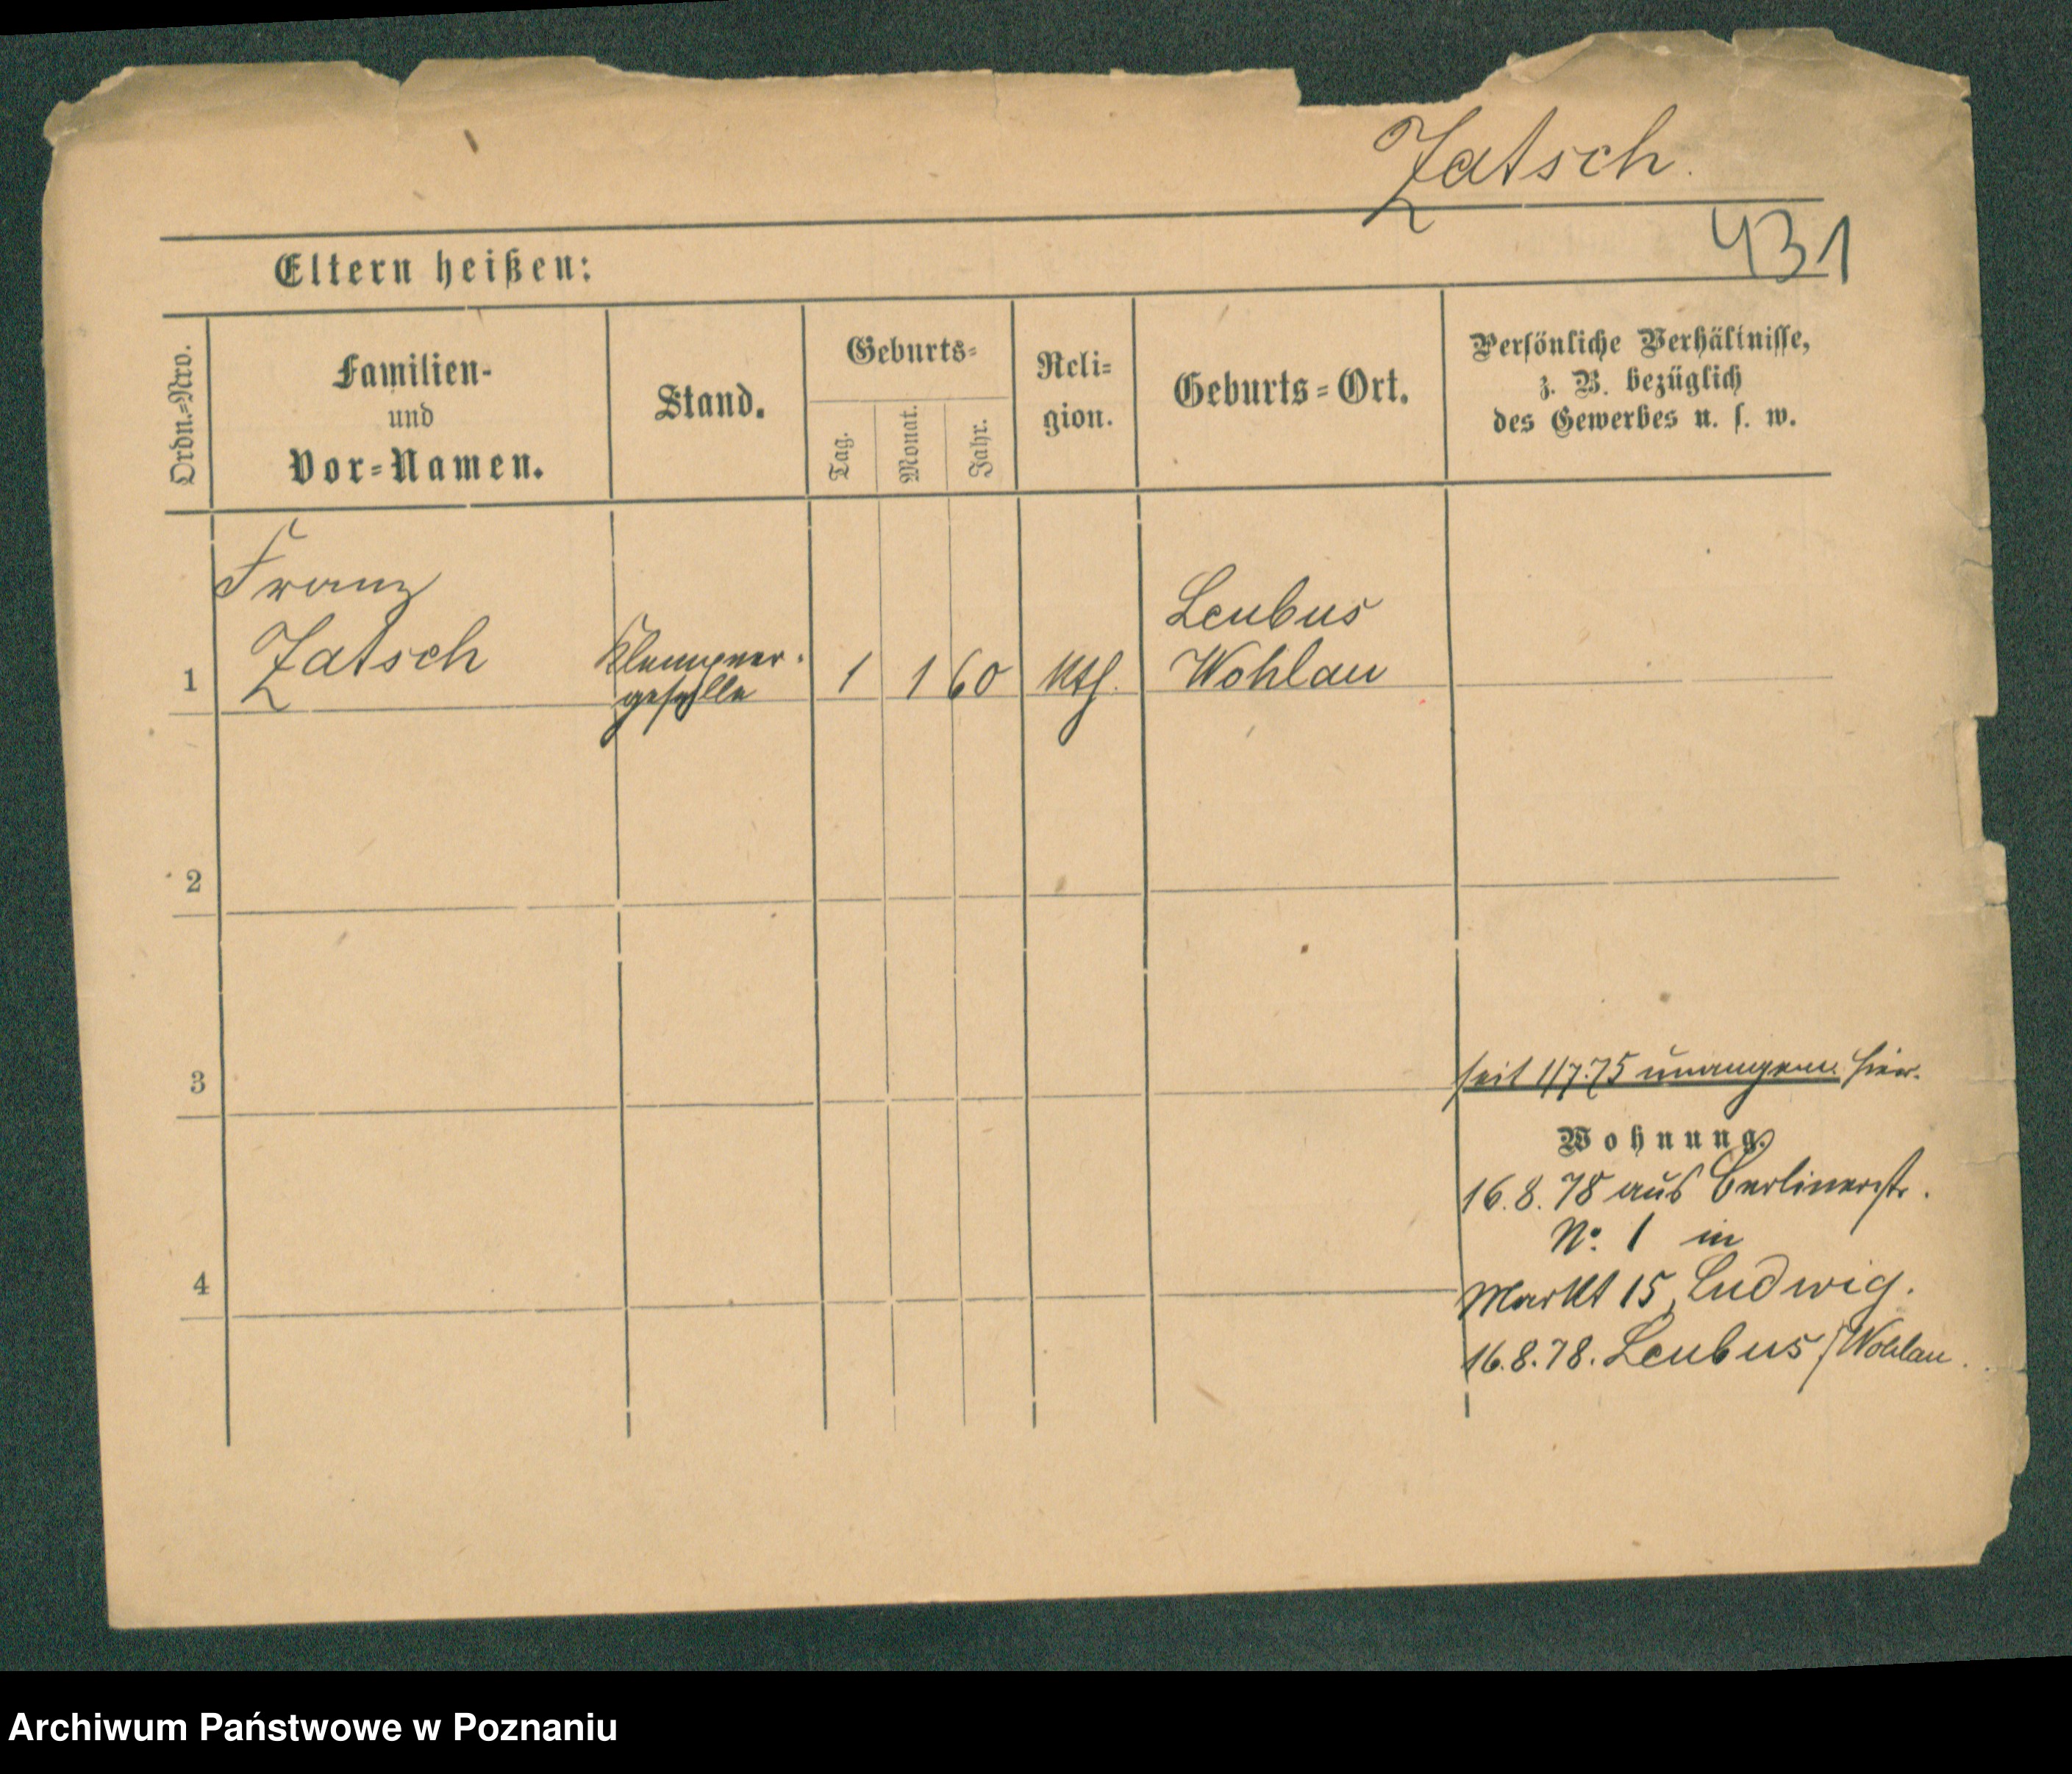 Zatsch.
431
Eltern heißen:
Ordn.=Nro.
Familien-
und
Vor=Namen.
Stand.
Geburts=
Tag.
Monat.
Jahr.
Reli=
gion.
Geburts=Ort.
Persönliche Verhältnisse,
z. B. bezüglich
des Gewerbes u. s. w.
1
Franz
Zatsch
Klempner-
geselle
1
1
60
Kth.
Leubus
Wohlau
2
3
seit 1/7.75 unangem. hier.
Wohnung.
16.8.78 aus Berlinerstr.
No. 1 in
4
Markt 15, Ludwig.
16.8.78. Leubus/Wohlau.
Archiwum Państwowe w Poznaniu